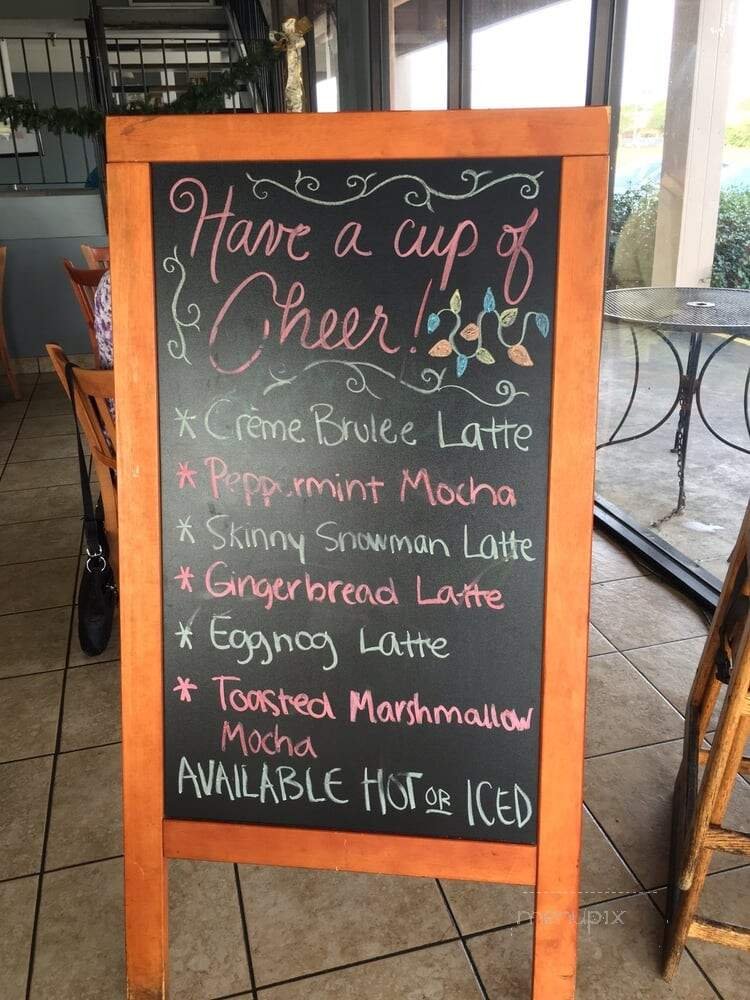 Have a cup of
Cheer!
* Crème Brulee Latte
* Peppermint Mocha
* Skinny Snowman Latte
* Gingerbread Latte
* Eggnog Latte
* Toasted Marshmallow
Mocha
AVAILABLE HOT OR ICED
menupix